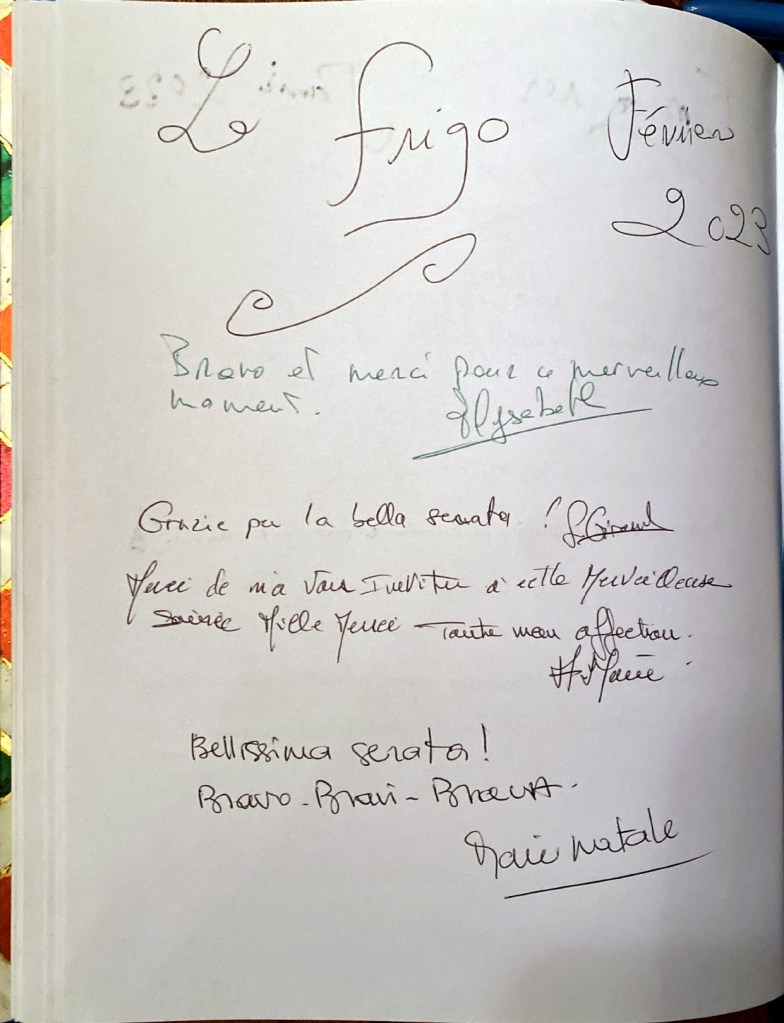 Le frigo Février
2023
Bravo et merci pour ce merveilleux
moment. Elysabeth
Grazie per la bella serata !
Merci de m'a voir Invitée à cette Merveilleuse
Soirée Mille Merci Toute mon affection.
A. Marie
Bellissima serata!
Bravo - Bravi - Brava.
Marie natale